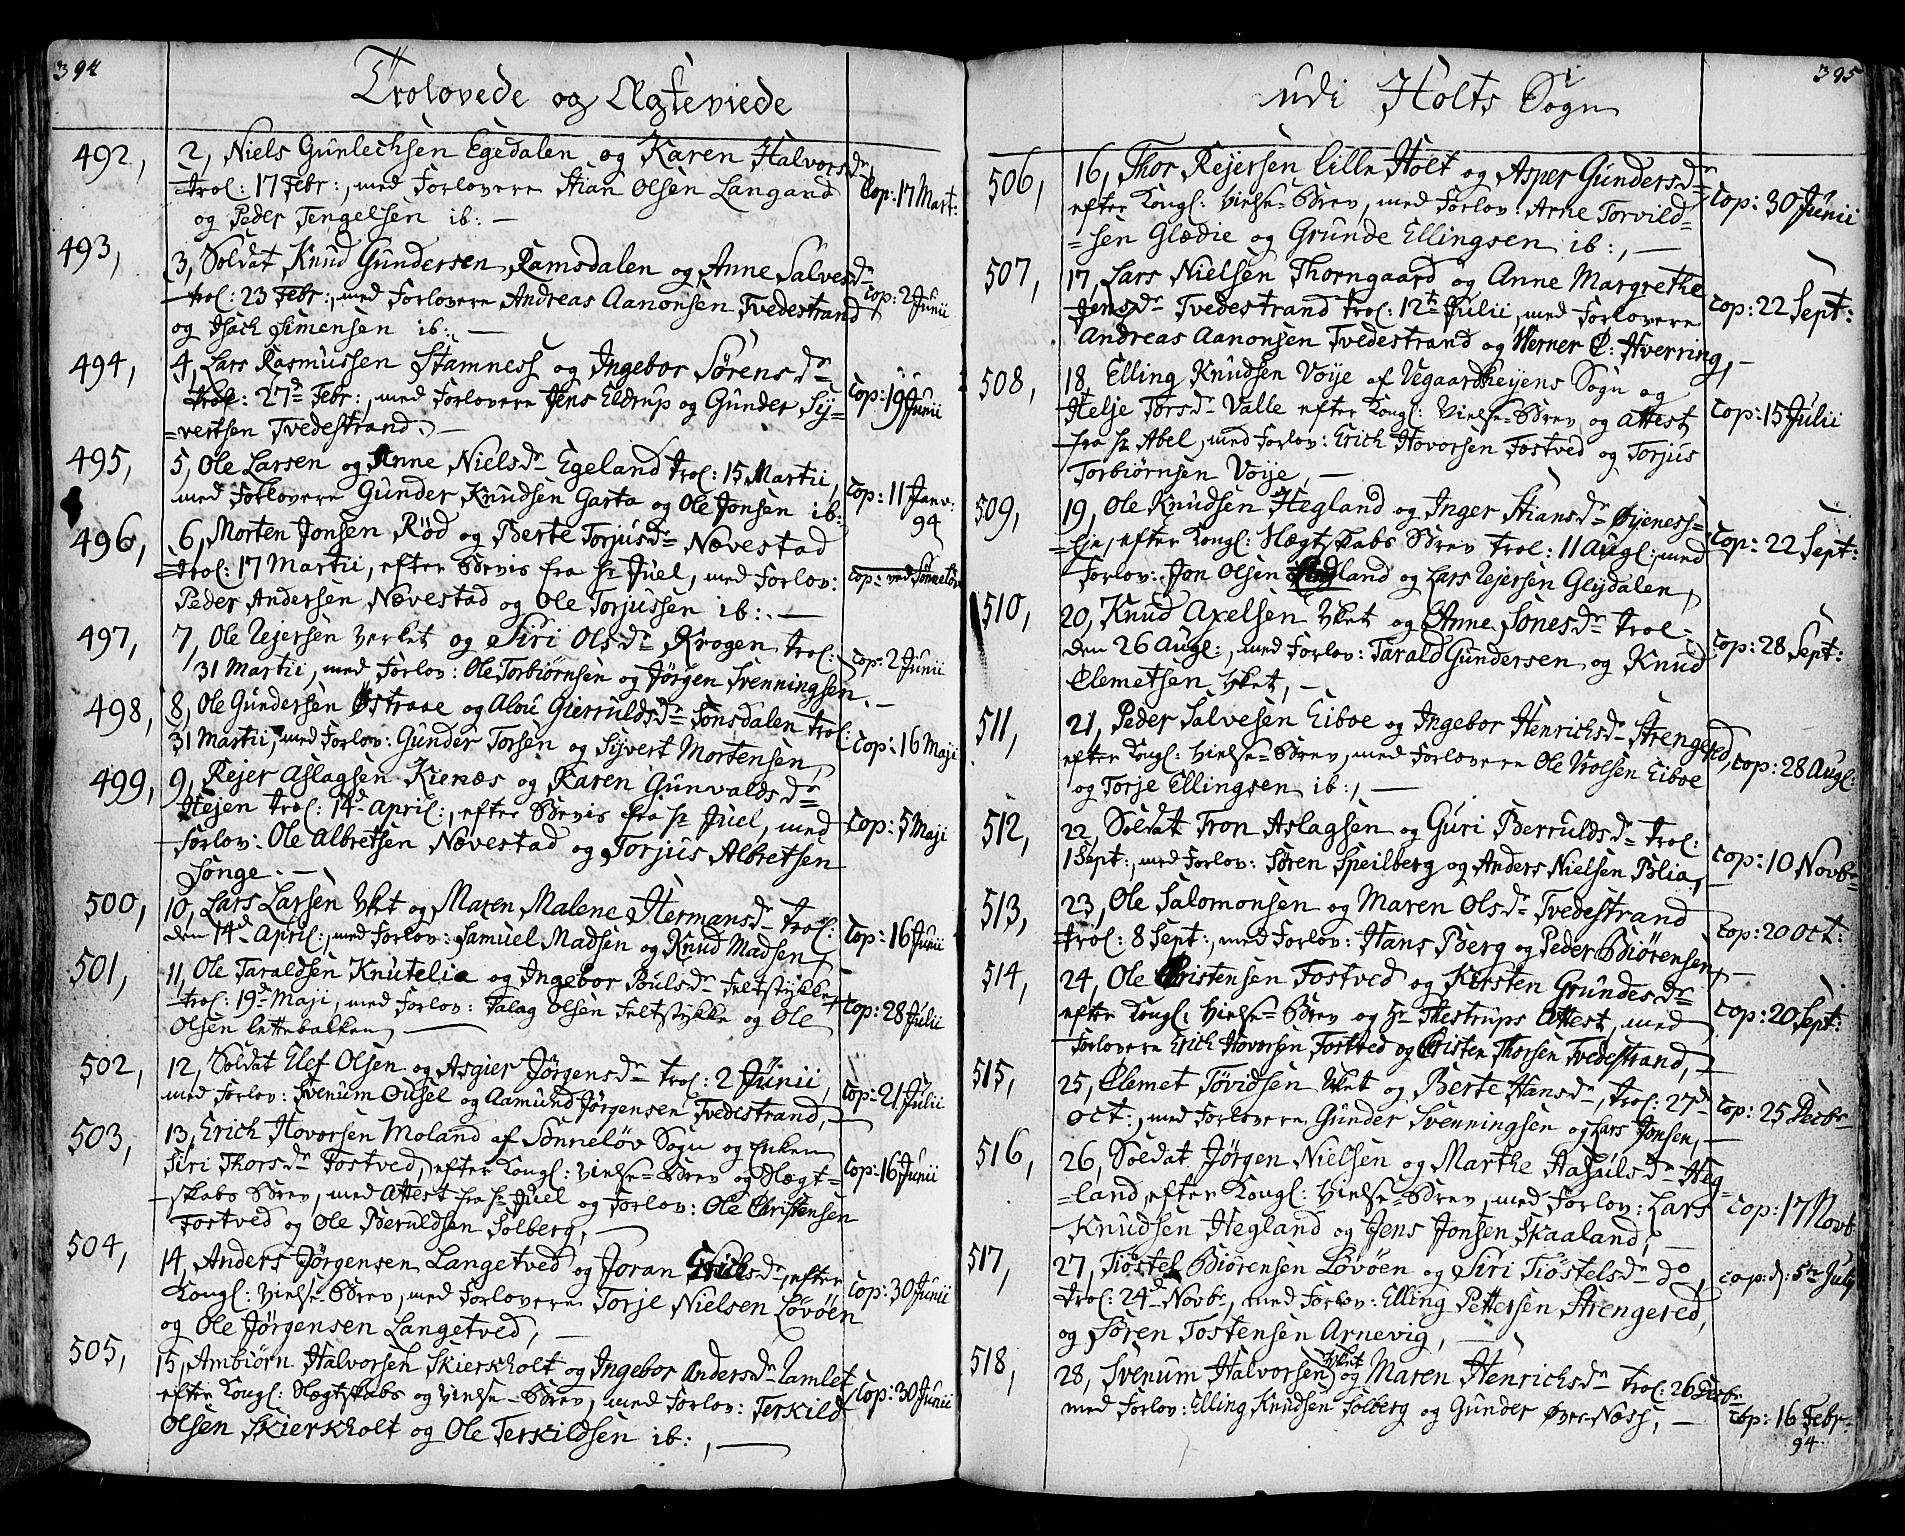 394
Trolovede og Ægteviede
492, 2, Niels Gunlechsen Egedalen og Karen Halvorsdr
trol: 17 Febr:, med Forlovere Stian Olsen Langand Cop: 17 Mart:
og Peder Tengelsen ib: —
493, 3, Soldat Knud Gundersen Ramsdalen og Anne Salvesdr
trol: 23 Febr:, med Forlovere Andreas Aanonsen Tvedestrand Cop: 2 Junii
og Isach Simensen ib: —
494, 4, Lars Rasmussen Stamness og Ingebor Sørensdr
trol: 27de Febr:, med Forlovere Jens Eldrup og Gunder Sy= Cop: 19 Junii
=vertsen Tvedestrand. —
495, 5, Ole Larsen og Anne Nielsdr Egeland trol: 15 Martii,
med Forlovere Gunder Knudsen Garta og Ole Jonsen ib: Cop: 11 Janv: 94
496, 6, Morten Jonsen Röd og Berte Torjusdr Nævestad
trol: 17 Martii, efter Bevis fra Hr Juel, med Forlov: Cop: ved Sønneløv
Peder Andersen Nævestad og Ole Torjussen ib: —
497, 7, Ole Rejersen Verket og Siri Olsdr Krogen trol:
31 Martii, med Forlov: Ole Torbiörnsen og Jørgen Svenningsen. — Cop: 2 Junii
498, 8, Ole Gundersen Østraae og Alou Gierruldsdr Sonsdalen trol:
31 Martii, med Forlov: Gunder Torsen og Syvert Mortensen, Cop: 16 Maji
499, 9, Rejer Aslagsen Kienæs og Karen Gunvaldsdr
Hejen trol: 14de April:, efter Bevis fra Hr Juel, med Cop: 5 Maji
Forlov: Ole Albretsen Nævestad og Torjus Albretsen
Songe. —
500, 10, Lars Larsen Vket og Maren Malene Hermansdr trol:
den 14de April:, med Forlov: Samuel Madsen og Knud Madsen, Cop: 16 Junii
501, 11, Ole Taraldsen Knutelia og Ingebor Poulsdr Feltstykke,
trol: 19de Maji, med Forlov: Palag Olsen Feltstykke og Ole Cop: 28 Julii
Olsen lettebakken, —
502, 12, Soldat Elef Olsen og Asgier Jörgensdr trol: 2 Junii,
med Forlov: Svenum Ousel og Aamund Jörgensen Tvedestrand, — Cop: 21 Julii
503, 13, Erich Hovorsen Moland af Sønneløv Sogn og Enken
Siri Thorsdr Fostved, efter Kongl: Vielse=Brev og Slægt= Cop: 16 Junii
skabs Brev, med Attest fra Hr Juel og Forlov: Ole Christensen
Fostved og Ole Beruldsen Solberg, —
504, 14, Anders Jørgensen Langetved og Joran Nielsdr, efter
Kongl: Vielse=Brev, med Forlovere Torje Nielsen Lövöen Cop: 30 Junii
og Ole Jörgensen Langetved, —
505, 15, Ambiörn Halvorsen Skierkholt og Ingebor Andersdr Ramlet
efter Kongl: Slægtskabs og Vielse=Brev, med Forlov: Terkild Cop: 30 Junii
Olsen Skierkholt og Ole Terkildsen ib:, —
395
udi Holts Sogn
506, 16, Thor Rejersen Lille Holt og Asper Gundersdr
efter Kongl: Vielse=Brev, med Forlov: Arne Torvild= Cop: 30 Junii
=sen Glædie og Grunde Ellingsen ib:, —
507, 17, Lars Nielsen Thorngaard og Anne Margrethe
Jensdr Tvedestrand trol: 12te Julii, med Forlovere Cop: 22 Sept:
Andreas Aanonsen Tvedestrand og Werner C: Hverring, —
508, 18, Elling Knudsen Voje af Vegaardheyens Sogn og
Helje Torsdr Valle efter Kongl: Vielse=Brev og Attest Cop: 15 Julii
fra Hr Abel, med Forlov: Erich Hovorsen Fostved og Torjus
Torbiörnsen Voije, —
509, 19, Ole Knudsen Hegland og Inger Stiansdr Øyeness=
=eje, efter Kongl: Slægtskabs Brev trol: 11 Augl:, med Cop: 22 Sept:
Forlov: Jon Olsen Hegland og Lars Rejersen Glydalen,
510, 20, Knud Axelsen Vket og Anne Sonesdr trol=
den 26 Augl:, med Forlov: Tarald Gundersen og Knud Cop: 28 Sept:
Clemetsen Vket, —
511, 21, Peder Salvesen Eiboe og Ingebor Henrichsdr Strengered,
efter Kongl: Vielse=Brev, med Forlovere Ole Vrolsen Eiboe Cop: 28 Augl:
og Torje Ellingsen ib:, —
512, 22, Soldat Tron Aslagsen og Guri Berruldsdr trol:
1 Sept:, med Forlov: Søren Speilberg og Anders Nielsen Blia, Cop: 10 Novbr
513, 23, Ole Salomonsen og Maren Olsdr Tvedestrand
trol: 8 Sept:, med Forlov: Hans Berg og Peder Biörensen, — Cop: 20 Oct:
514, 24, Ole Christensen Fostved og Kirsten Grundesdr
efter Kongl: Vielse=Brev og Hr Thestrups Attest, med Cop: 20 Sept:
Forlovere Erich Hovorsen Fostved og Christen Thorsen Tvedestrand, —
515, 25, Clemet Tövidsen Vket og Berte Hansdr, trol: 27de
Oct:, med Forlovere Gunder Svenningsen og Lars Jonsen, — Cop: 25 Decbr
516, 26, Soldat Jörgen Nielsen og Marthe Aasulsdr Heg=
=land, efter Kongl: Vielse=Brev, med Forlov: Lars Cop: 17 Novb
Knudsen Hegland og Jens Jonsen Skaaland, —
517, 27, Tiöstel Biörensen Lövöen og Siri Tiöstelsdr do,
trol: 24de Novbr, med Forlov: Elling Pettersen Strengered, Cop: d: 5te July
og Søren Tostensen Arnevig, —
518, 28, Svenum Halvorsen Vket og Maren Henrichsdr trol: 26 Decbr
med Forlov: Elling Knudsen Solberg og Gunder Øvre=Næss, — Cop: 16 Febr: 94